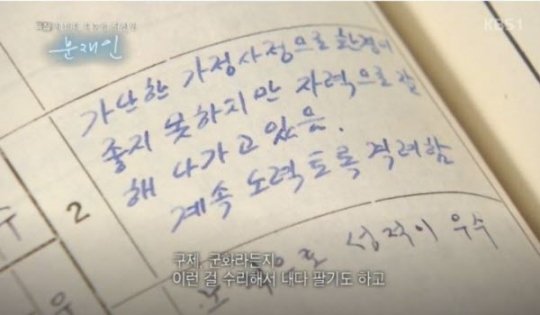 문재인
KBS1
가난한 가정사정으로 환경이
좋지 못하지만 자력으로 잘
해 나가고 있음.
계속 노력토록 격려함
수
2
성적이 우수
우
구제, 군화라든지
이런 걸 수리해서 내다 팔기도 하고